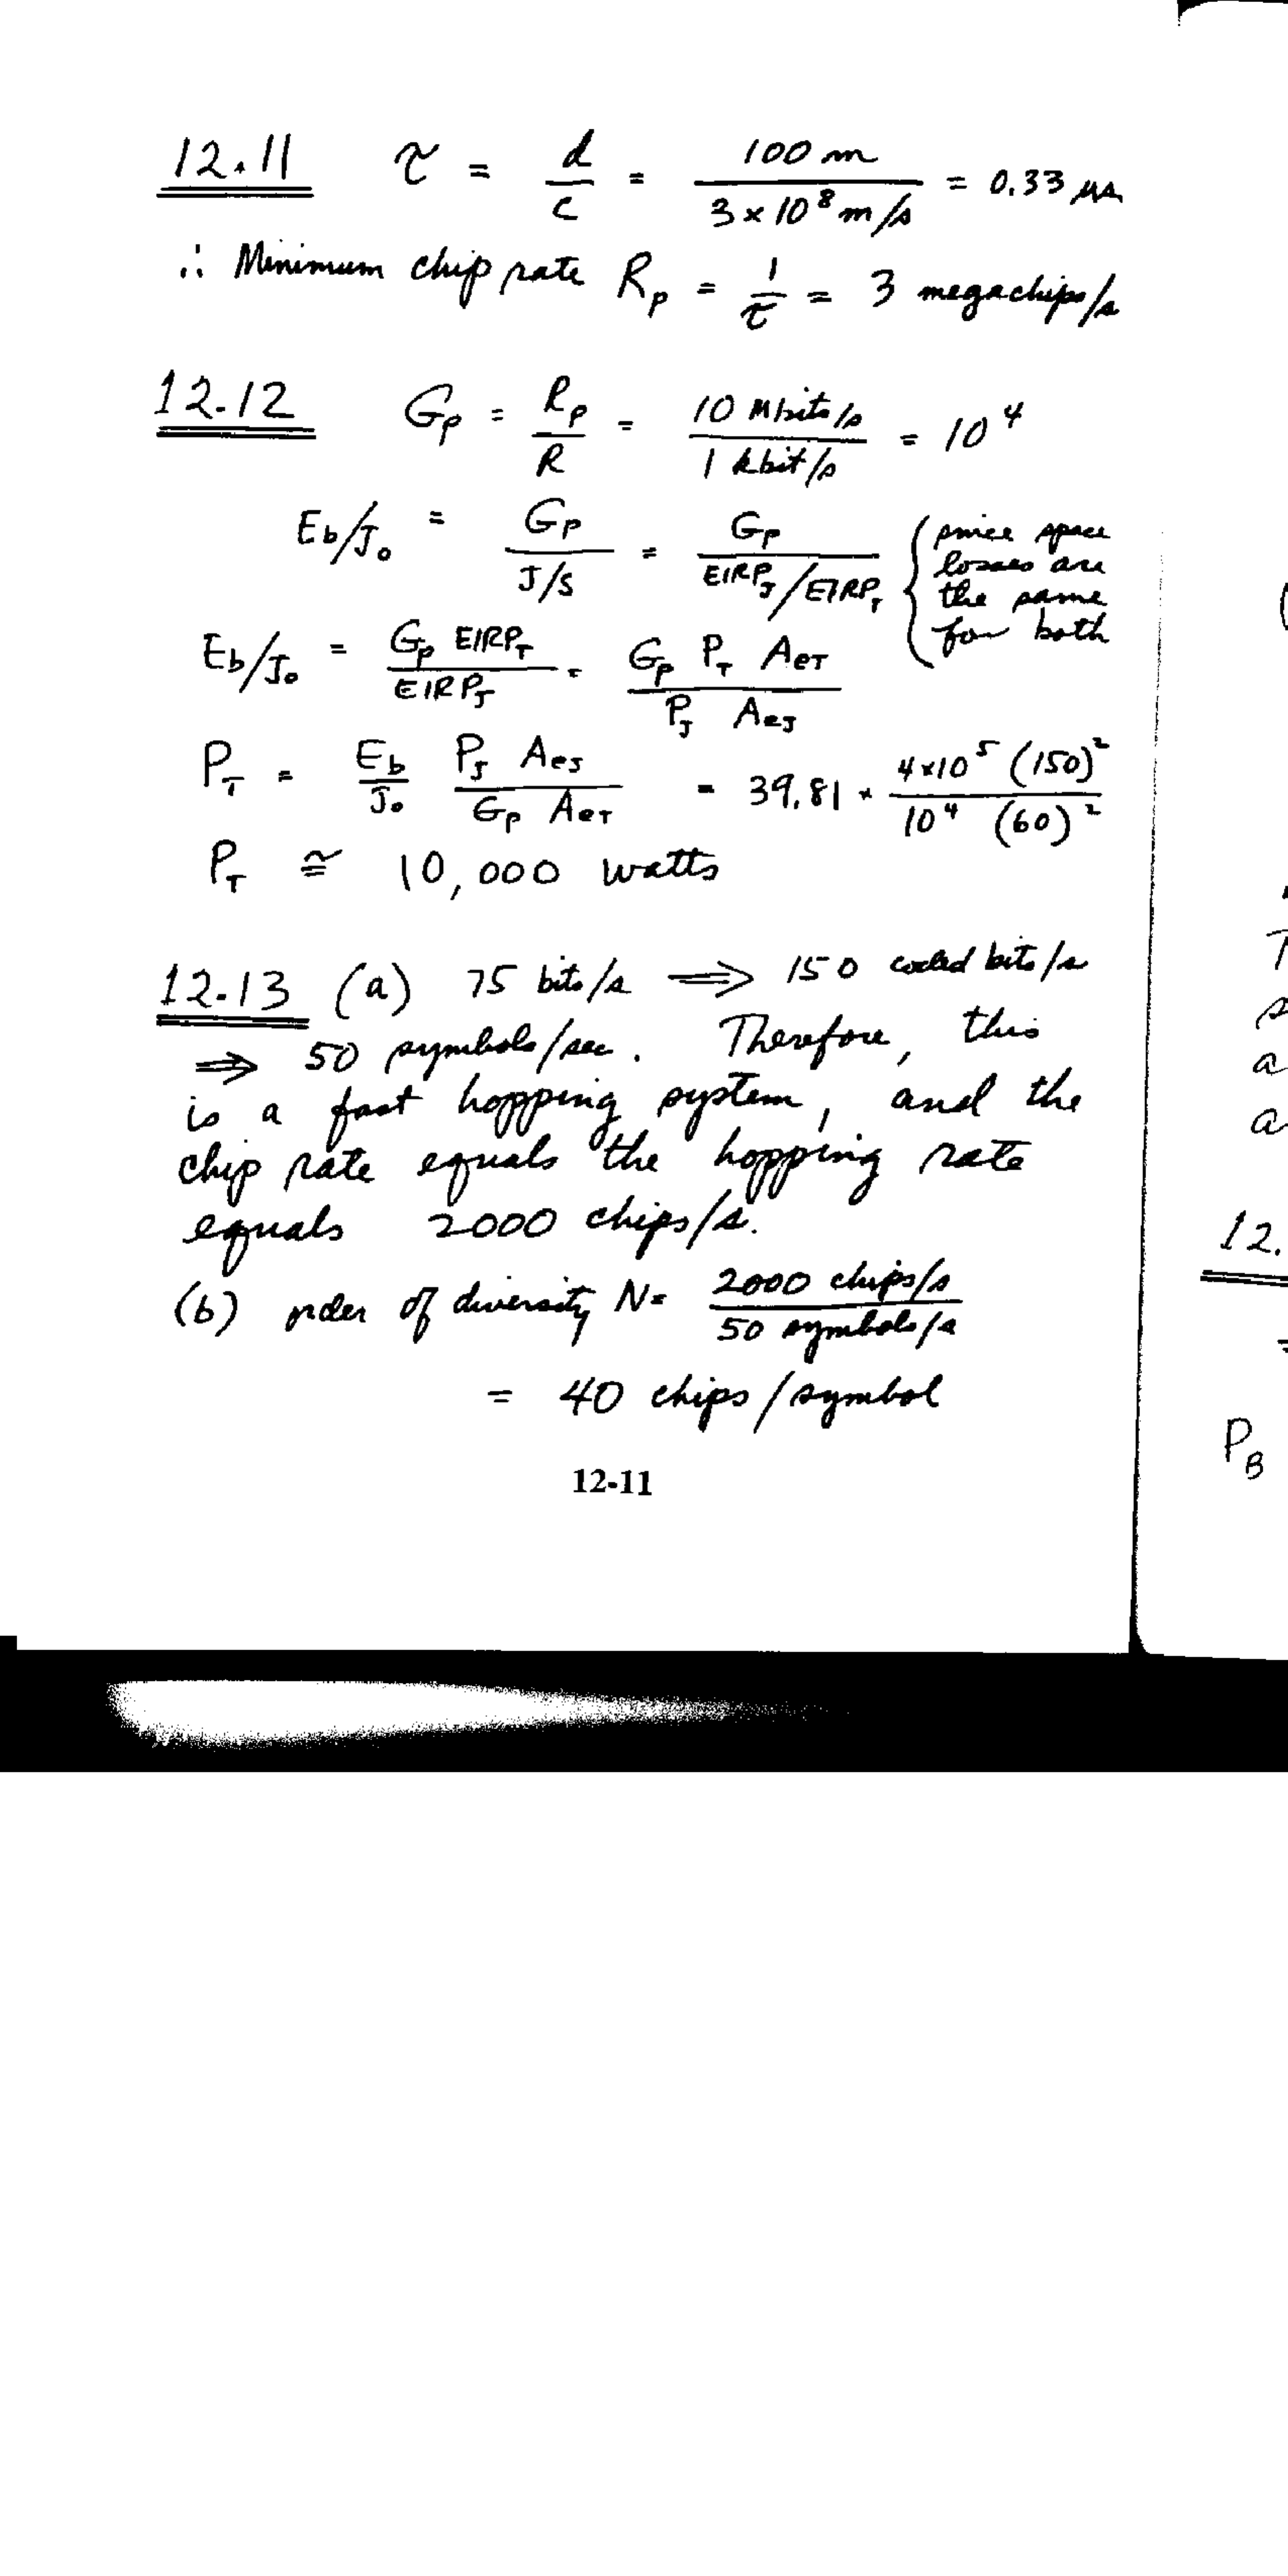 12.11 τ = d/c = 100 m / 3 × 10⁸ m/s = 0.33 μs
∴ Minimum chip rate R_p = 1/τ = 3 megachips/s
12-12 G_p = R_p/R = 10 Mbits/s / 1 kbit/s = 10⁴
E_b/J_o = G_p / J/S = G_p / EIRP_J/EIRP_T { since space
losses are
the same
for both
E_b/J_o = G_p EIRP_T / EIRP_J = G_p P_T A_eT / P_J A_eJ
P_T = E_b/J_o P_J A_eJ / G_p A_eT = 39.81 × 4×10⁵ (150)² / 10⁴ (60)²
P_T ≅ 10,000 watts
12-13 (a) 75 bits/s ⟹ 150 coded bits/s
⟹ 50 symbols/sec. Therefore, this
is a fast hopping system, and the
chip rate equals the hopping rate
equals 2000 chips/s.
(b) order of diversity N = 2000 chips/s / 50 symbols/s
= 40 chips/symbol
12-11
12.
P_B